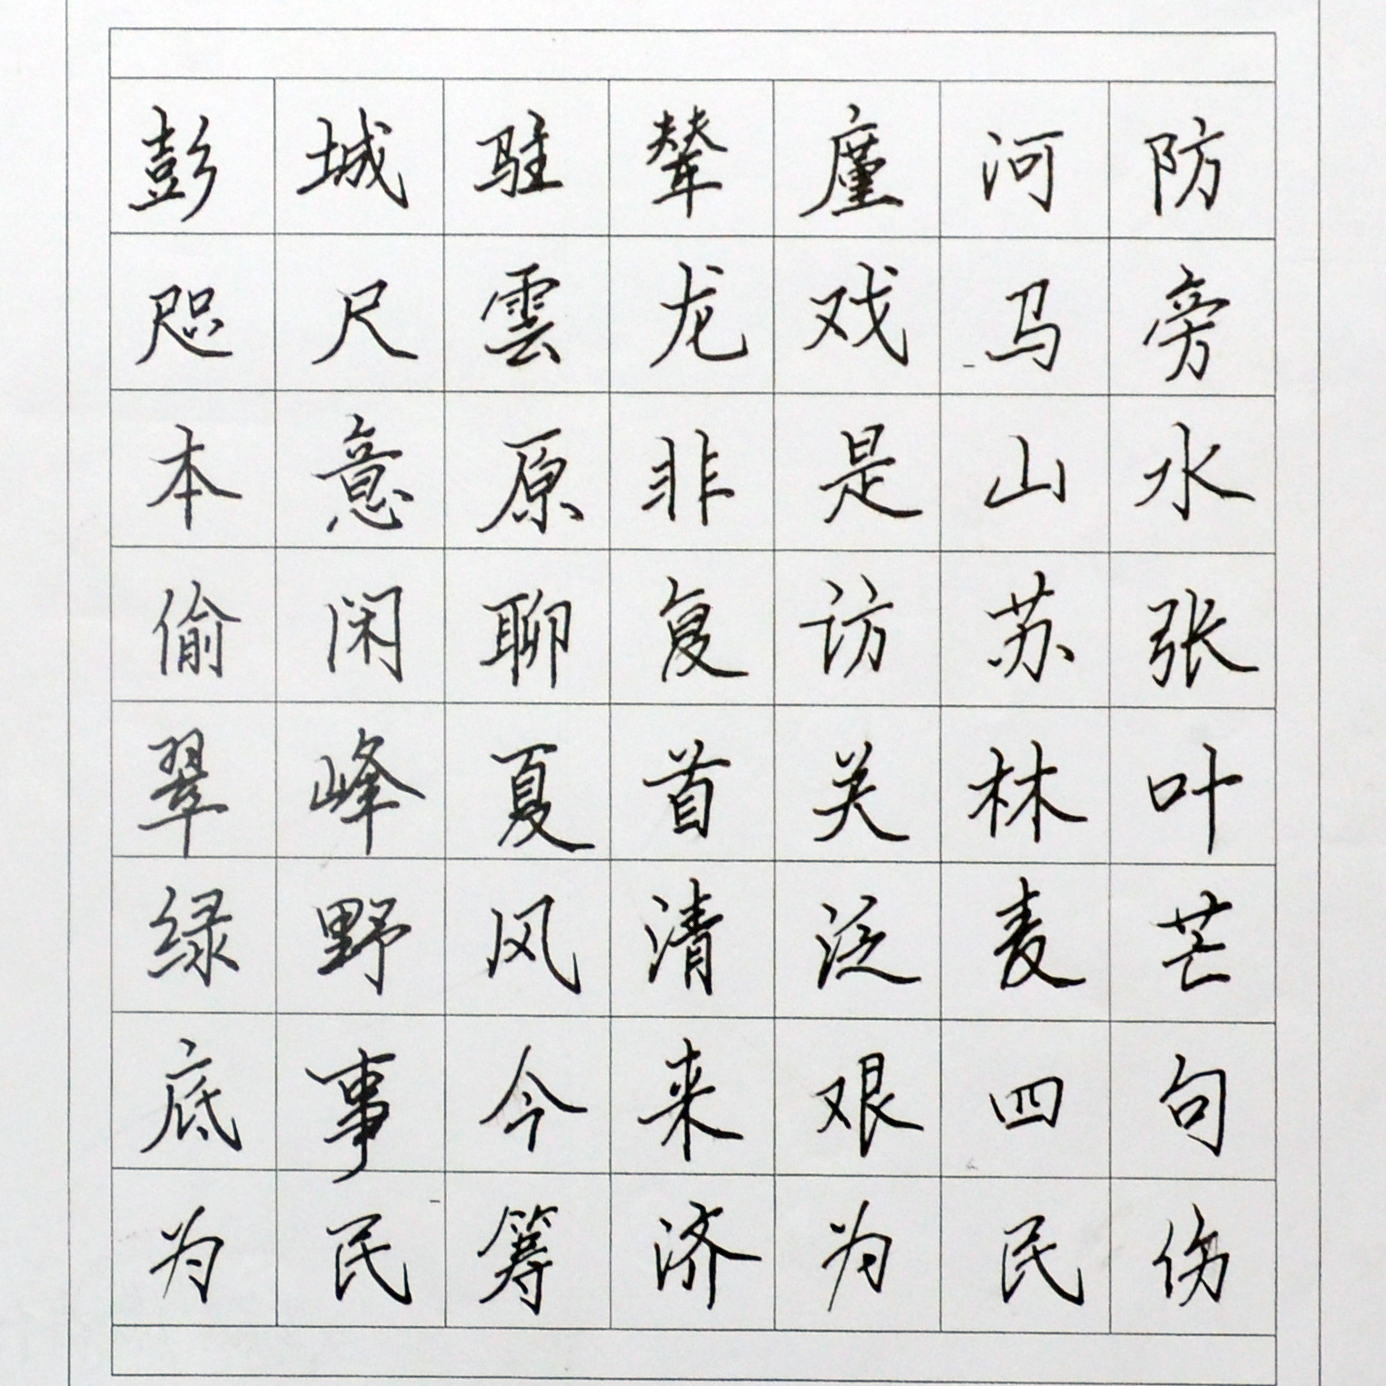 彭城驻辇廑河防
咫尺雲龙戏马旁
本意原非是山水
偷闲聊复访苏张
翠峰夏首关林叶
绿野风清泛麦芒
底事今来艰四句
为民筹济为民伤